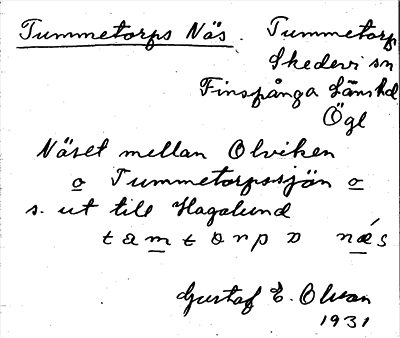 Tummetorps Näs. Tummetorp
Skedevi sn
Finspånga länshd
Ögl
Näset mellan Olviken
o Tummetorpssjön o
s. ut till Hagalund
tamtorps näs
Gustaf E. Olsson
1931